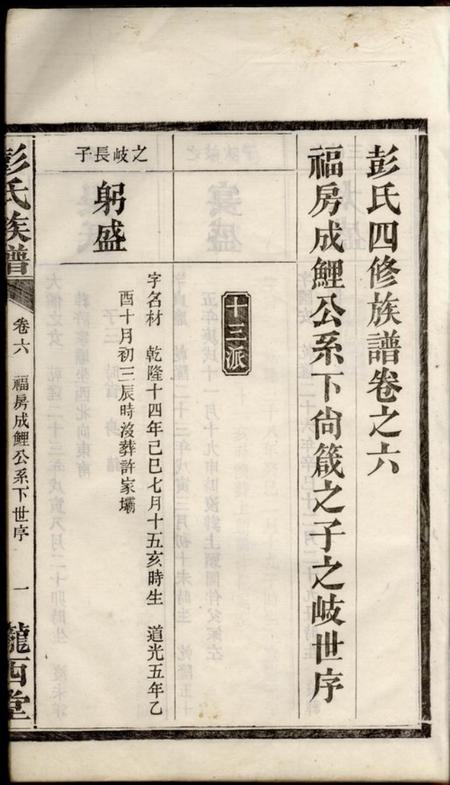 彭氏四修族譜卷之六
福房成鯉公系下尙箴之子之岐世序
十三派
之岐長子
躬盛
字名材 乾隆十四年己巳七月十五亥時生 道光五年乙
酉十月初三辰時沒葬許家壩
彭氏族譜 卷六 福房成鯉公系下世序 一 隴西堂